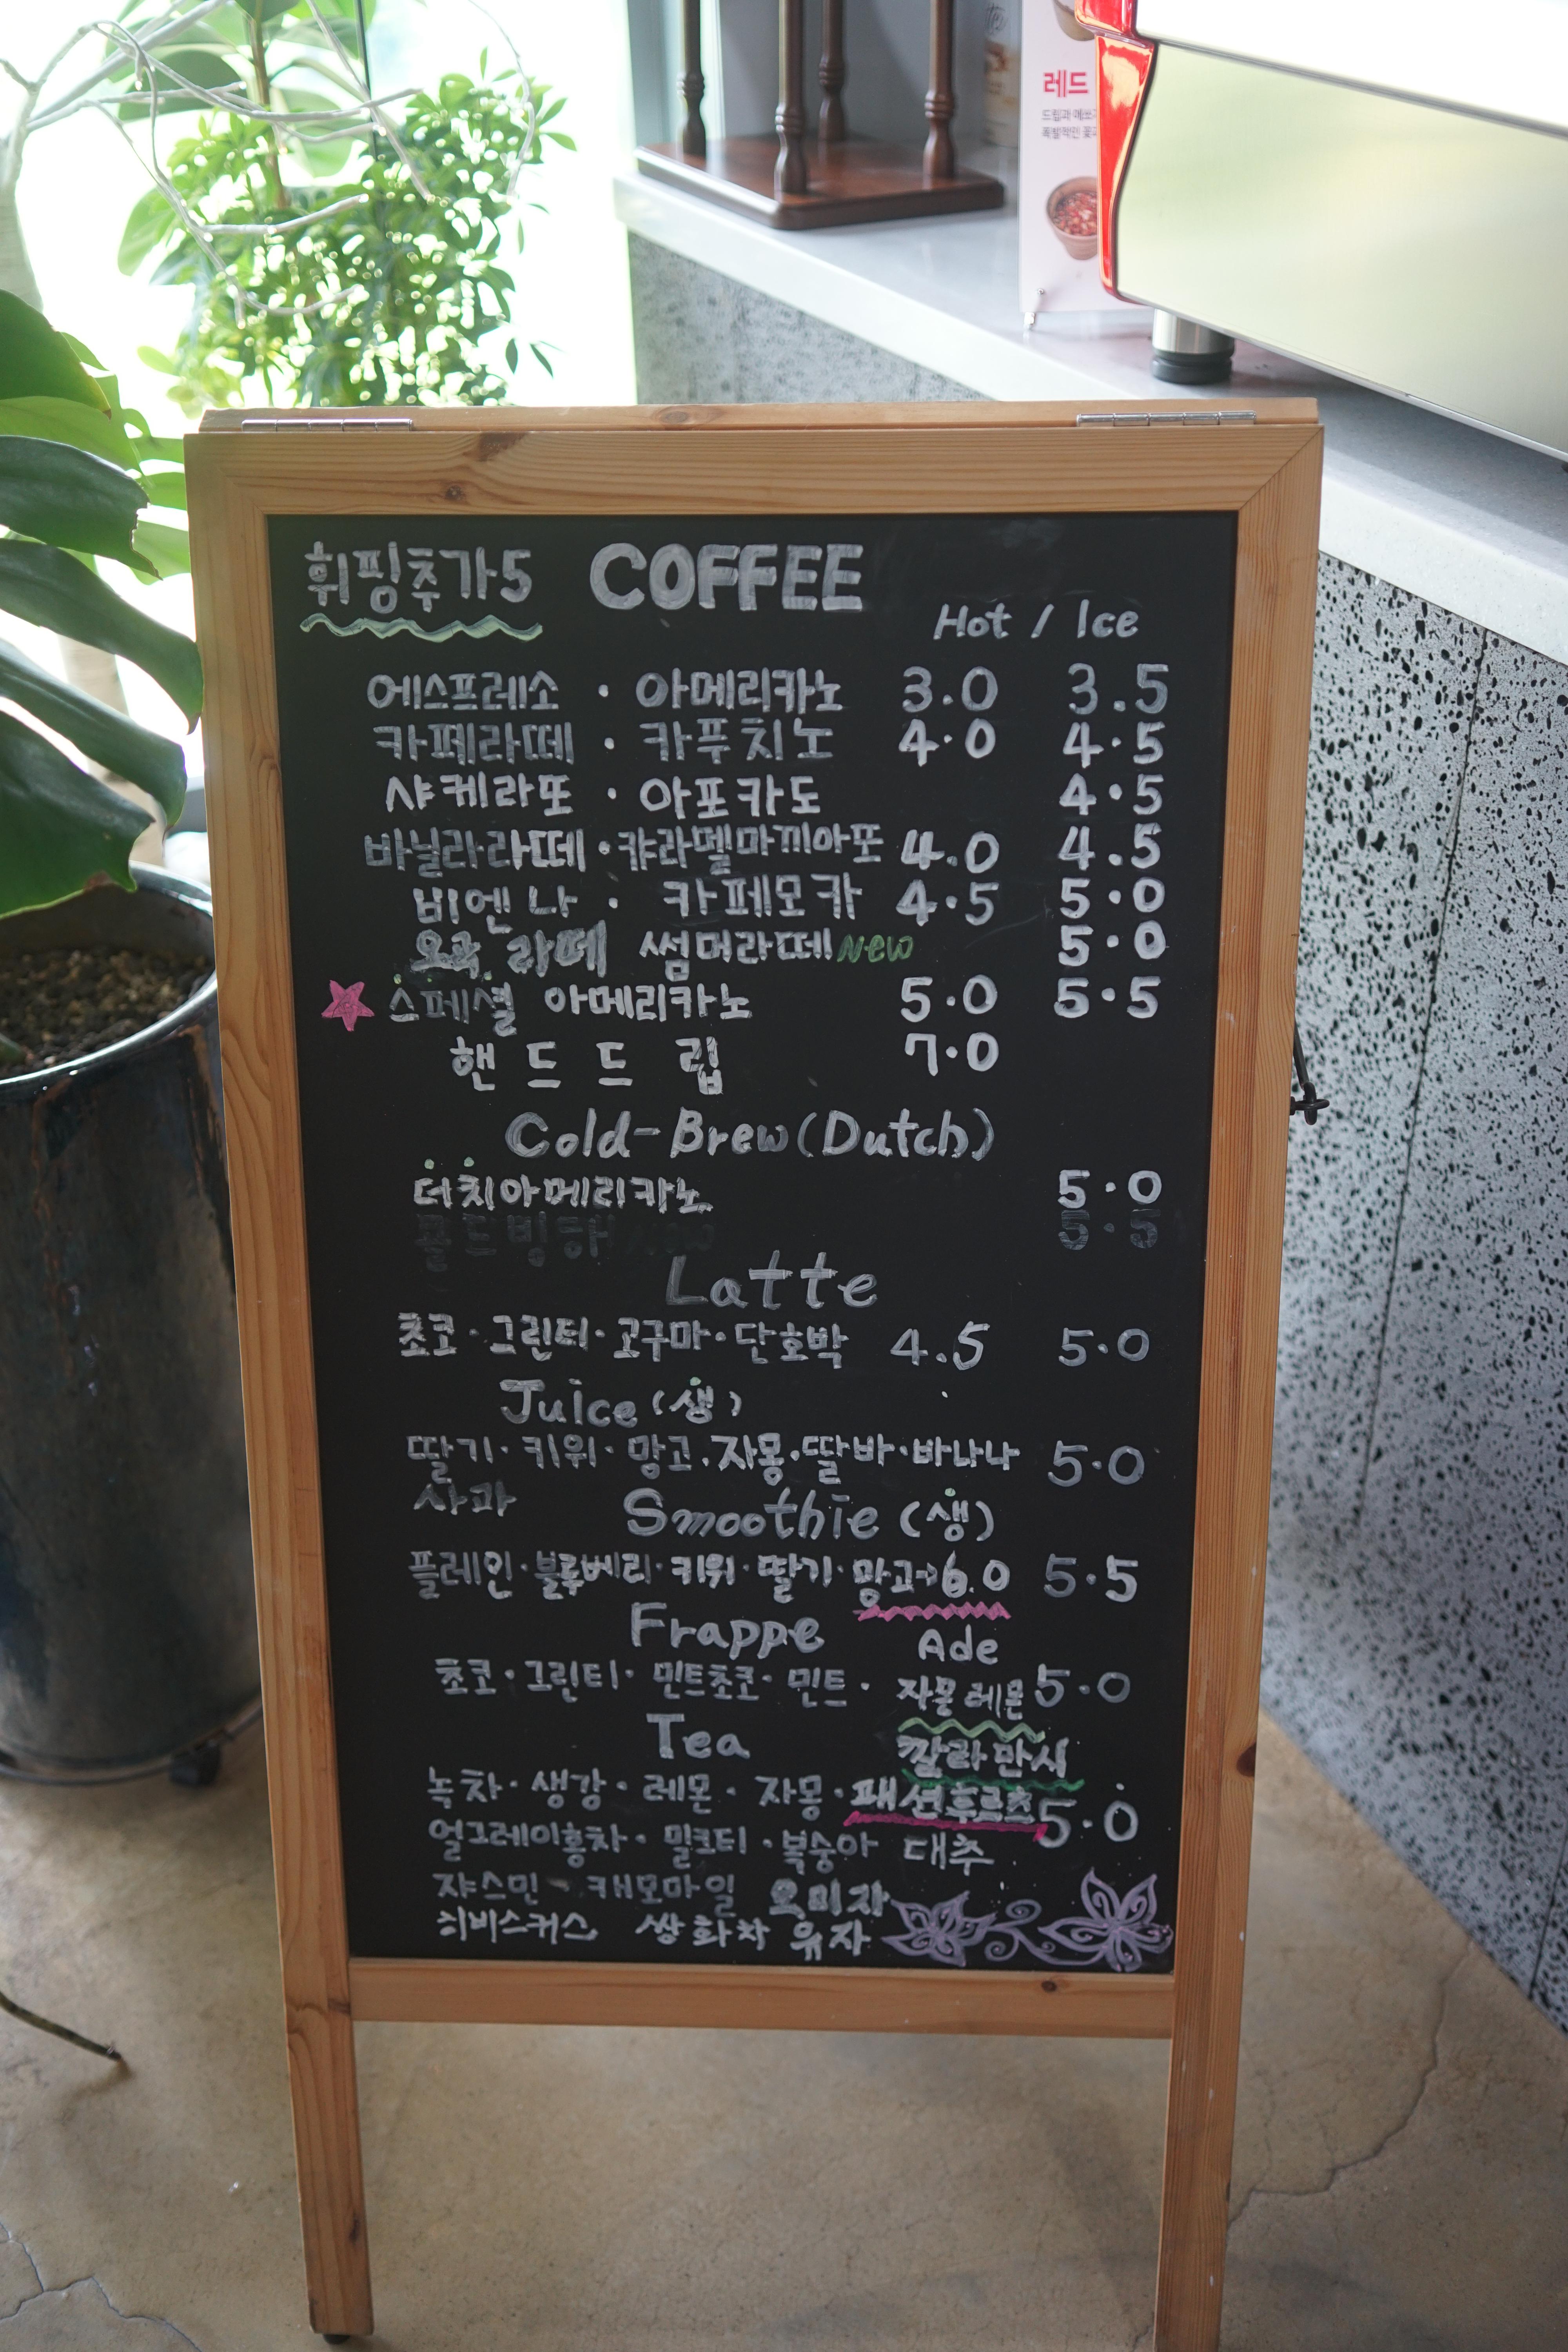 레드
휘핑추가5 COFFEE
Hot / Ice
에스프레소 · 아메리카노 3.0 3.5
카페라떼 · 카푸치노 4.0 4.5
샤케라또 · 아포카도 4.5
바닐라라떼 · 캬라멜마끼아또 4.0 4.5
비엔나 · 카페모카 4.5 5.0
라떼 썸머라떼 New 5.0
스페셜 아메리카노 5.0 5.5
핸드드립 7.0
Cold-Brew(Dutch)
더치아메리카노 5.0
5.5
Latte
초코 · 그린티 · 고구마 · 단호박 4.5 5.0
Juice (생)
딸기 · 키위 · 망고 · 자몽 · 딸바 · 바나나 5.0
사과
Smoothie (생)
플레인 · 블루베리 · 키위 · 딸기 · 망고→6.0 5.5
Frappe Ade
초코 · 그린티 · 민트초코 · 민트 · 자몽 레몬 5.0
Tea
깔라만시
녹차 · 생강 · 레몬 · 자몽 · 패션후르츠 5.0
얼그레이홍차 · 밀크티 · 복숭아 대추
쟈스민 · 캐모마일 오미자
히비스커스 쌍화차 유자